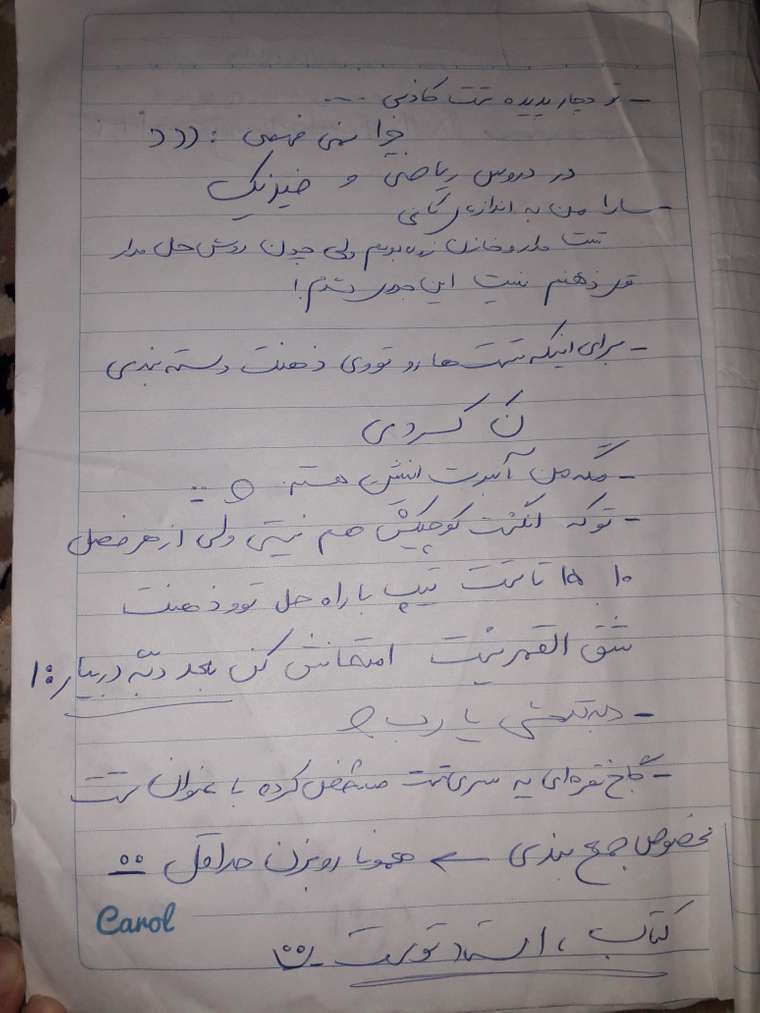 - تو دچار پدیده تست کاذبی ...
چرا نمی فهمی : (((
در دروس ریاضی و فیزیک
- سارا من به اندازه ی کافی
تست مدار و خازن زده بودم ولی چون روش حل مدار
تو ذهنم نیست این جوری شدم!
- برای اینکه تست ها رو تووی ذهنت دسته بندی
نکردی
- مگه من آلبرت انیشتین هستم
- تو که انگشت کوچیکش هم نیستی ولی از هر فصل
۱۰ ۱۵ تا تست تیپ با راه حل توو ذهنت
شق القمر نیست امتحانش کن بعد دبّه دربیار :|
- یا رب
- کاج نقره ای یه سری تست مشخص کرده با عنوان تست
مخصوص جمع بندی ← همونا رو بزن حداقل
Carol
کتاب ، استاد توست